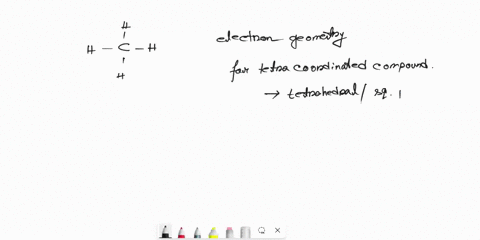 H
H - C - H
H
electron geometry
for tetra coordinated compound.
→ tetrahedral / sq.